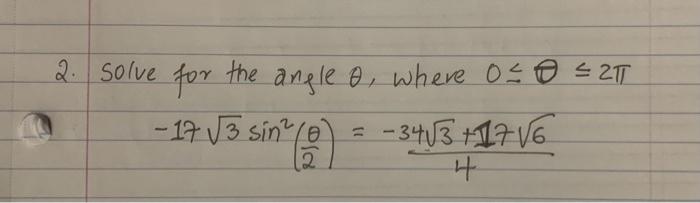 2. Solve for the angle θ, where 0 ≤ θ ≤ 2π
-17√3 sin²(θ/2) = (-34√3 + 17√6)/4